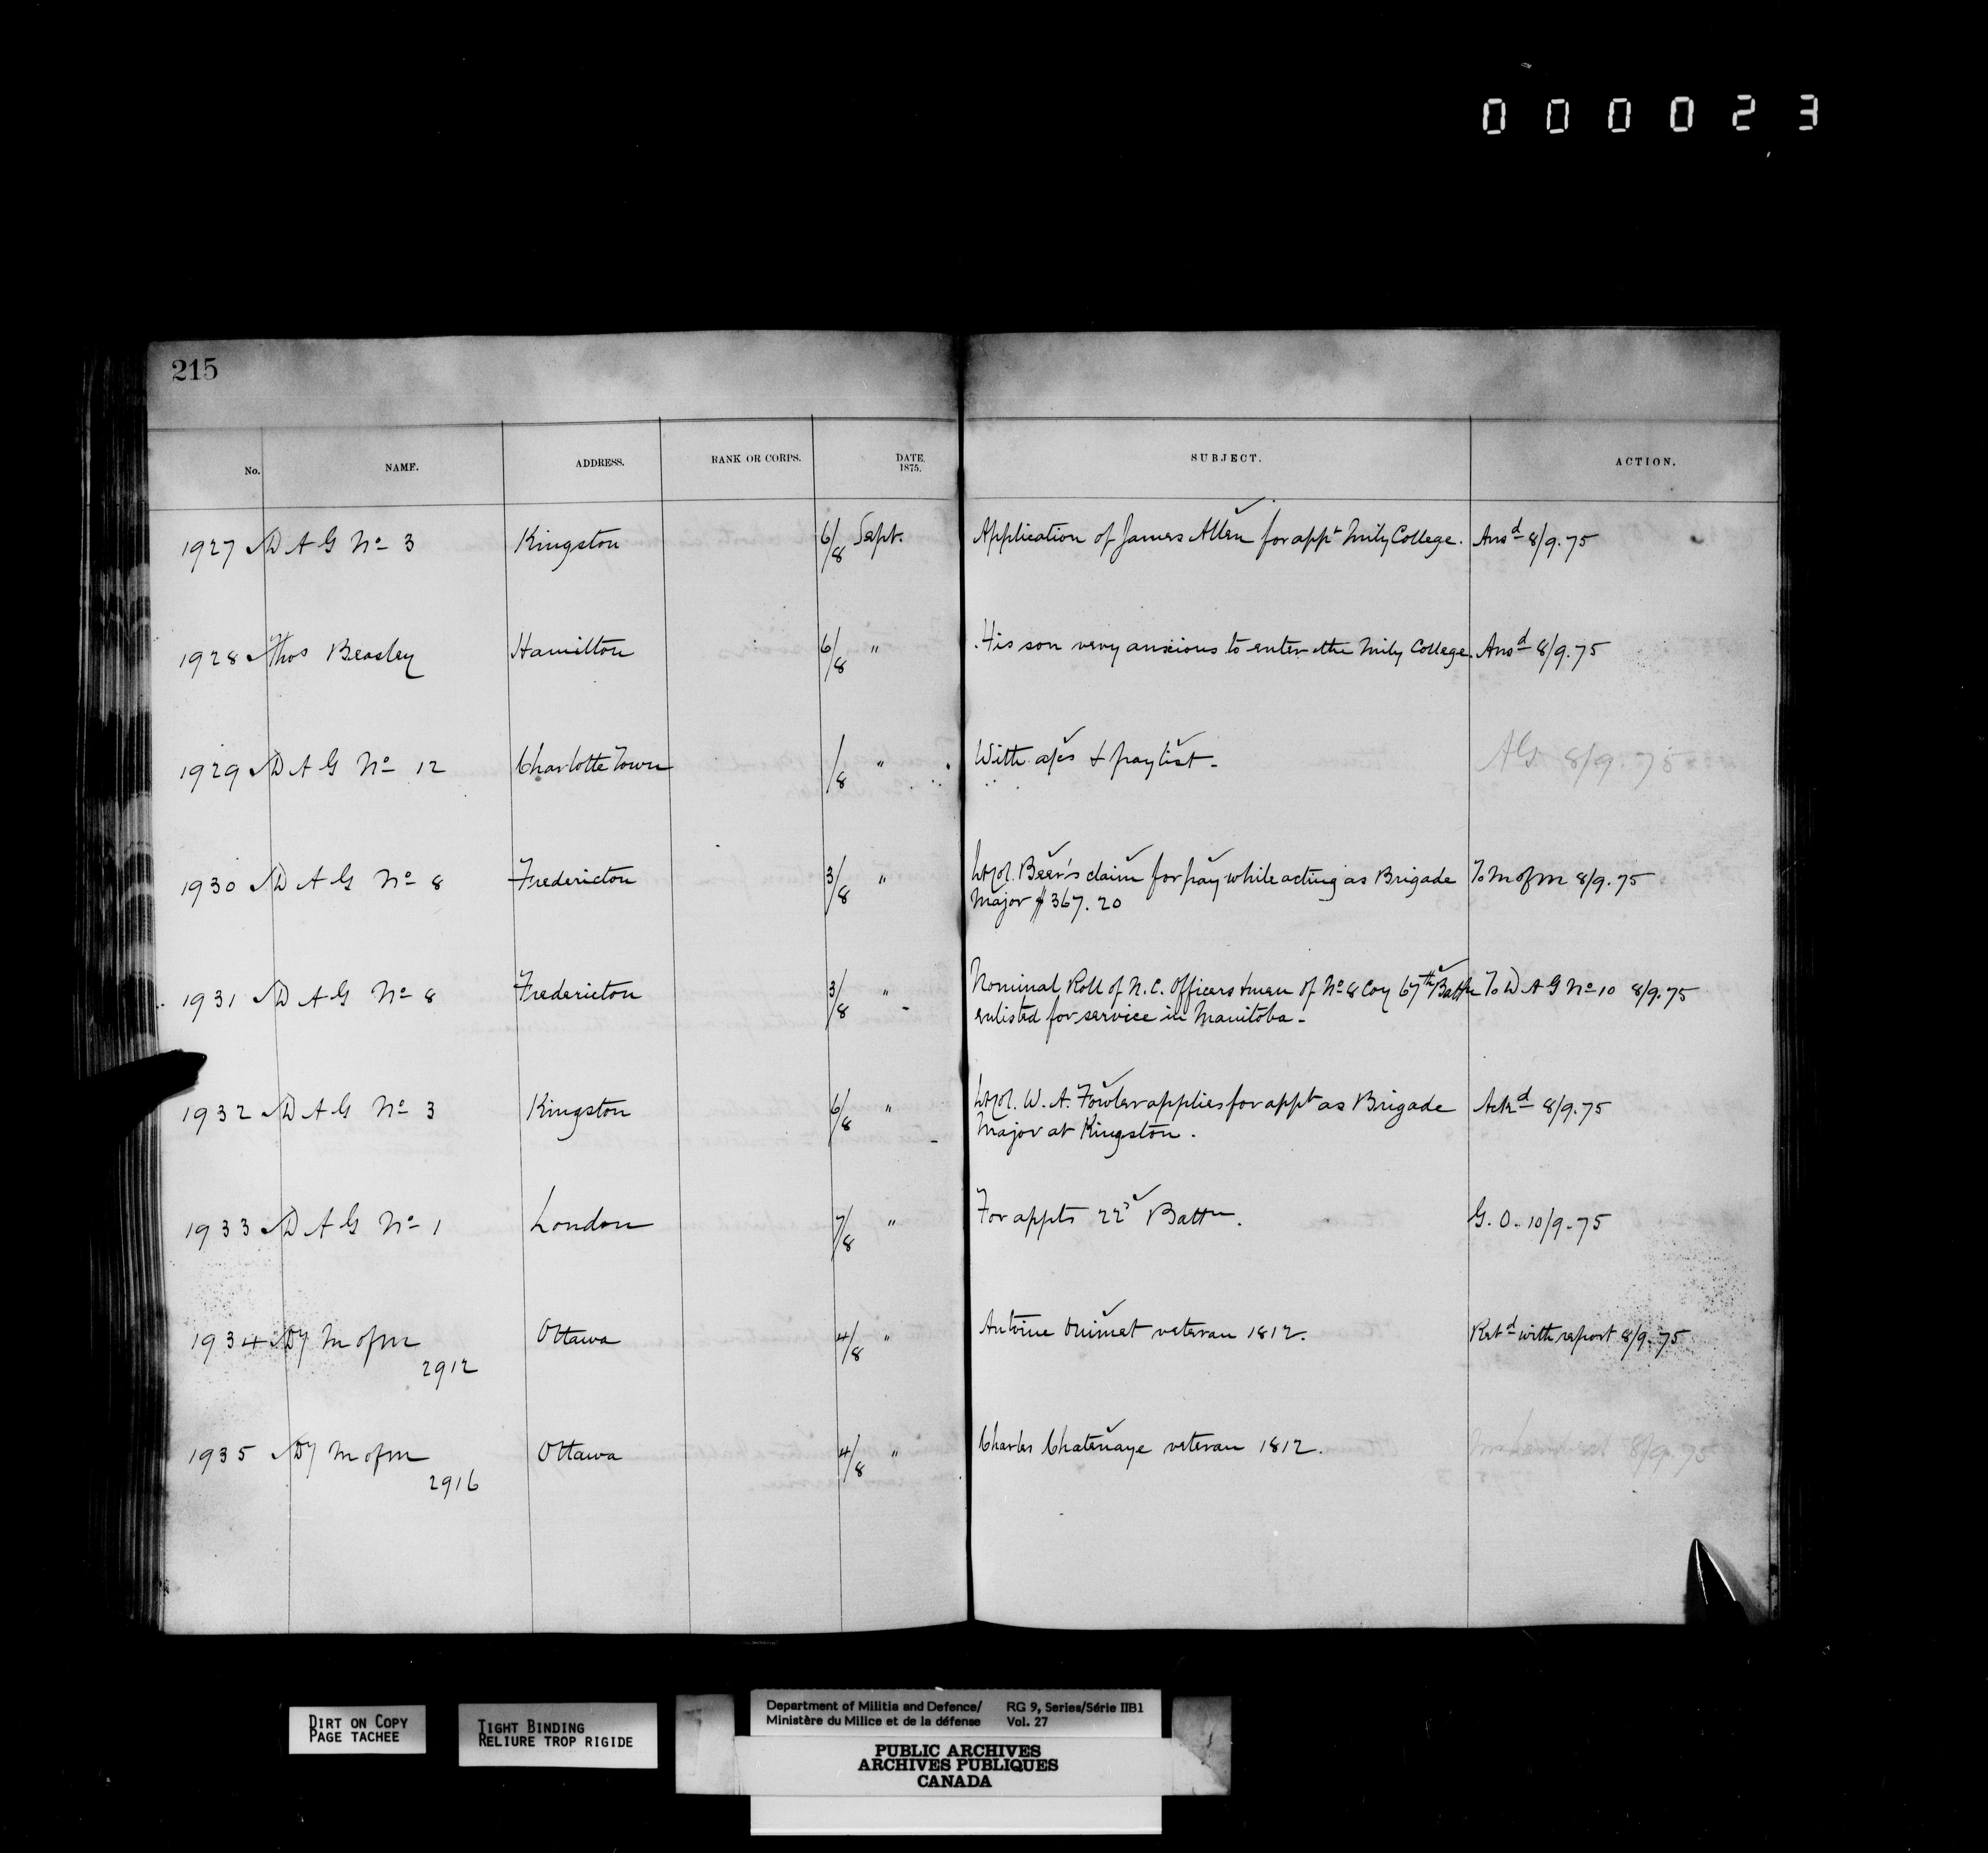 000023
215
No. NAME. ADDRESS. RANK OR CORPS. DATE. 1875. SUBJECT. ACTION.
1927 D A G No 3 Kingston 6/8 Sept. Application of James Allen for appt Mily College. Ansd 8/9.75
1928 Thos Beasley Hamilton 6/8 " His son very anxious to enter the Mily College. Ansd 8/9.75
1929 D A G No 12 Charlotte Town /8 " With a/cs & paylist. AG 8/9.75
1930 D A G No 8 Fredericton 3/8 " Lt Col. Beer's claim for pay while acting as Brigade To M of M 8/9.75
Major $367.20
1931 D A G No 8 Fredericton 3/8 " Nominal Roll of N.C. Officers & men of No 8 Coy 67th Battn To D A G No 10 8/9.75
enlisted for service in Manitoba -
1932 D A G No 3 Kingston 6/8 " Lt Col. W. A. Fowler applies for appt as Brigade Ackd 8/9.75
Major at Kingston.
1933 D A G No 1 London 7/8 " For appts 22d Battn. G. O. 10/9.75
1934 Dy M of M Ottawa 4/8 " Antoine Ouimet veteran 1812. Retd with report 8/9.75
2912
1935 Dy M of M Ottawa 4/8 " Charles Chatenaye veteran 1812. 8/9.75
2916
DIRT ON COPY
PAGE TACHEE
TIGHT BINDING
RELIURE TROP RIGIDE
Department of Militia and Defence/ RG 9, Series/Série IIB1
Ministère du Milice et de la défense Vol. 27
PUBLIC ARCHIVES
ARCHIVES PUBLIQUES
CANADA